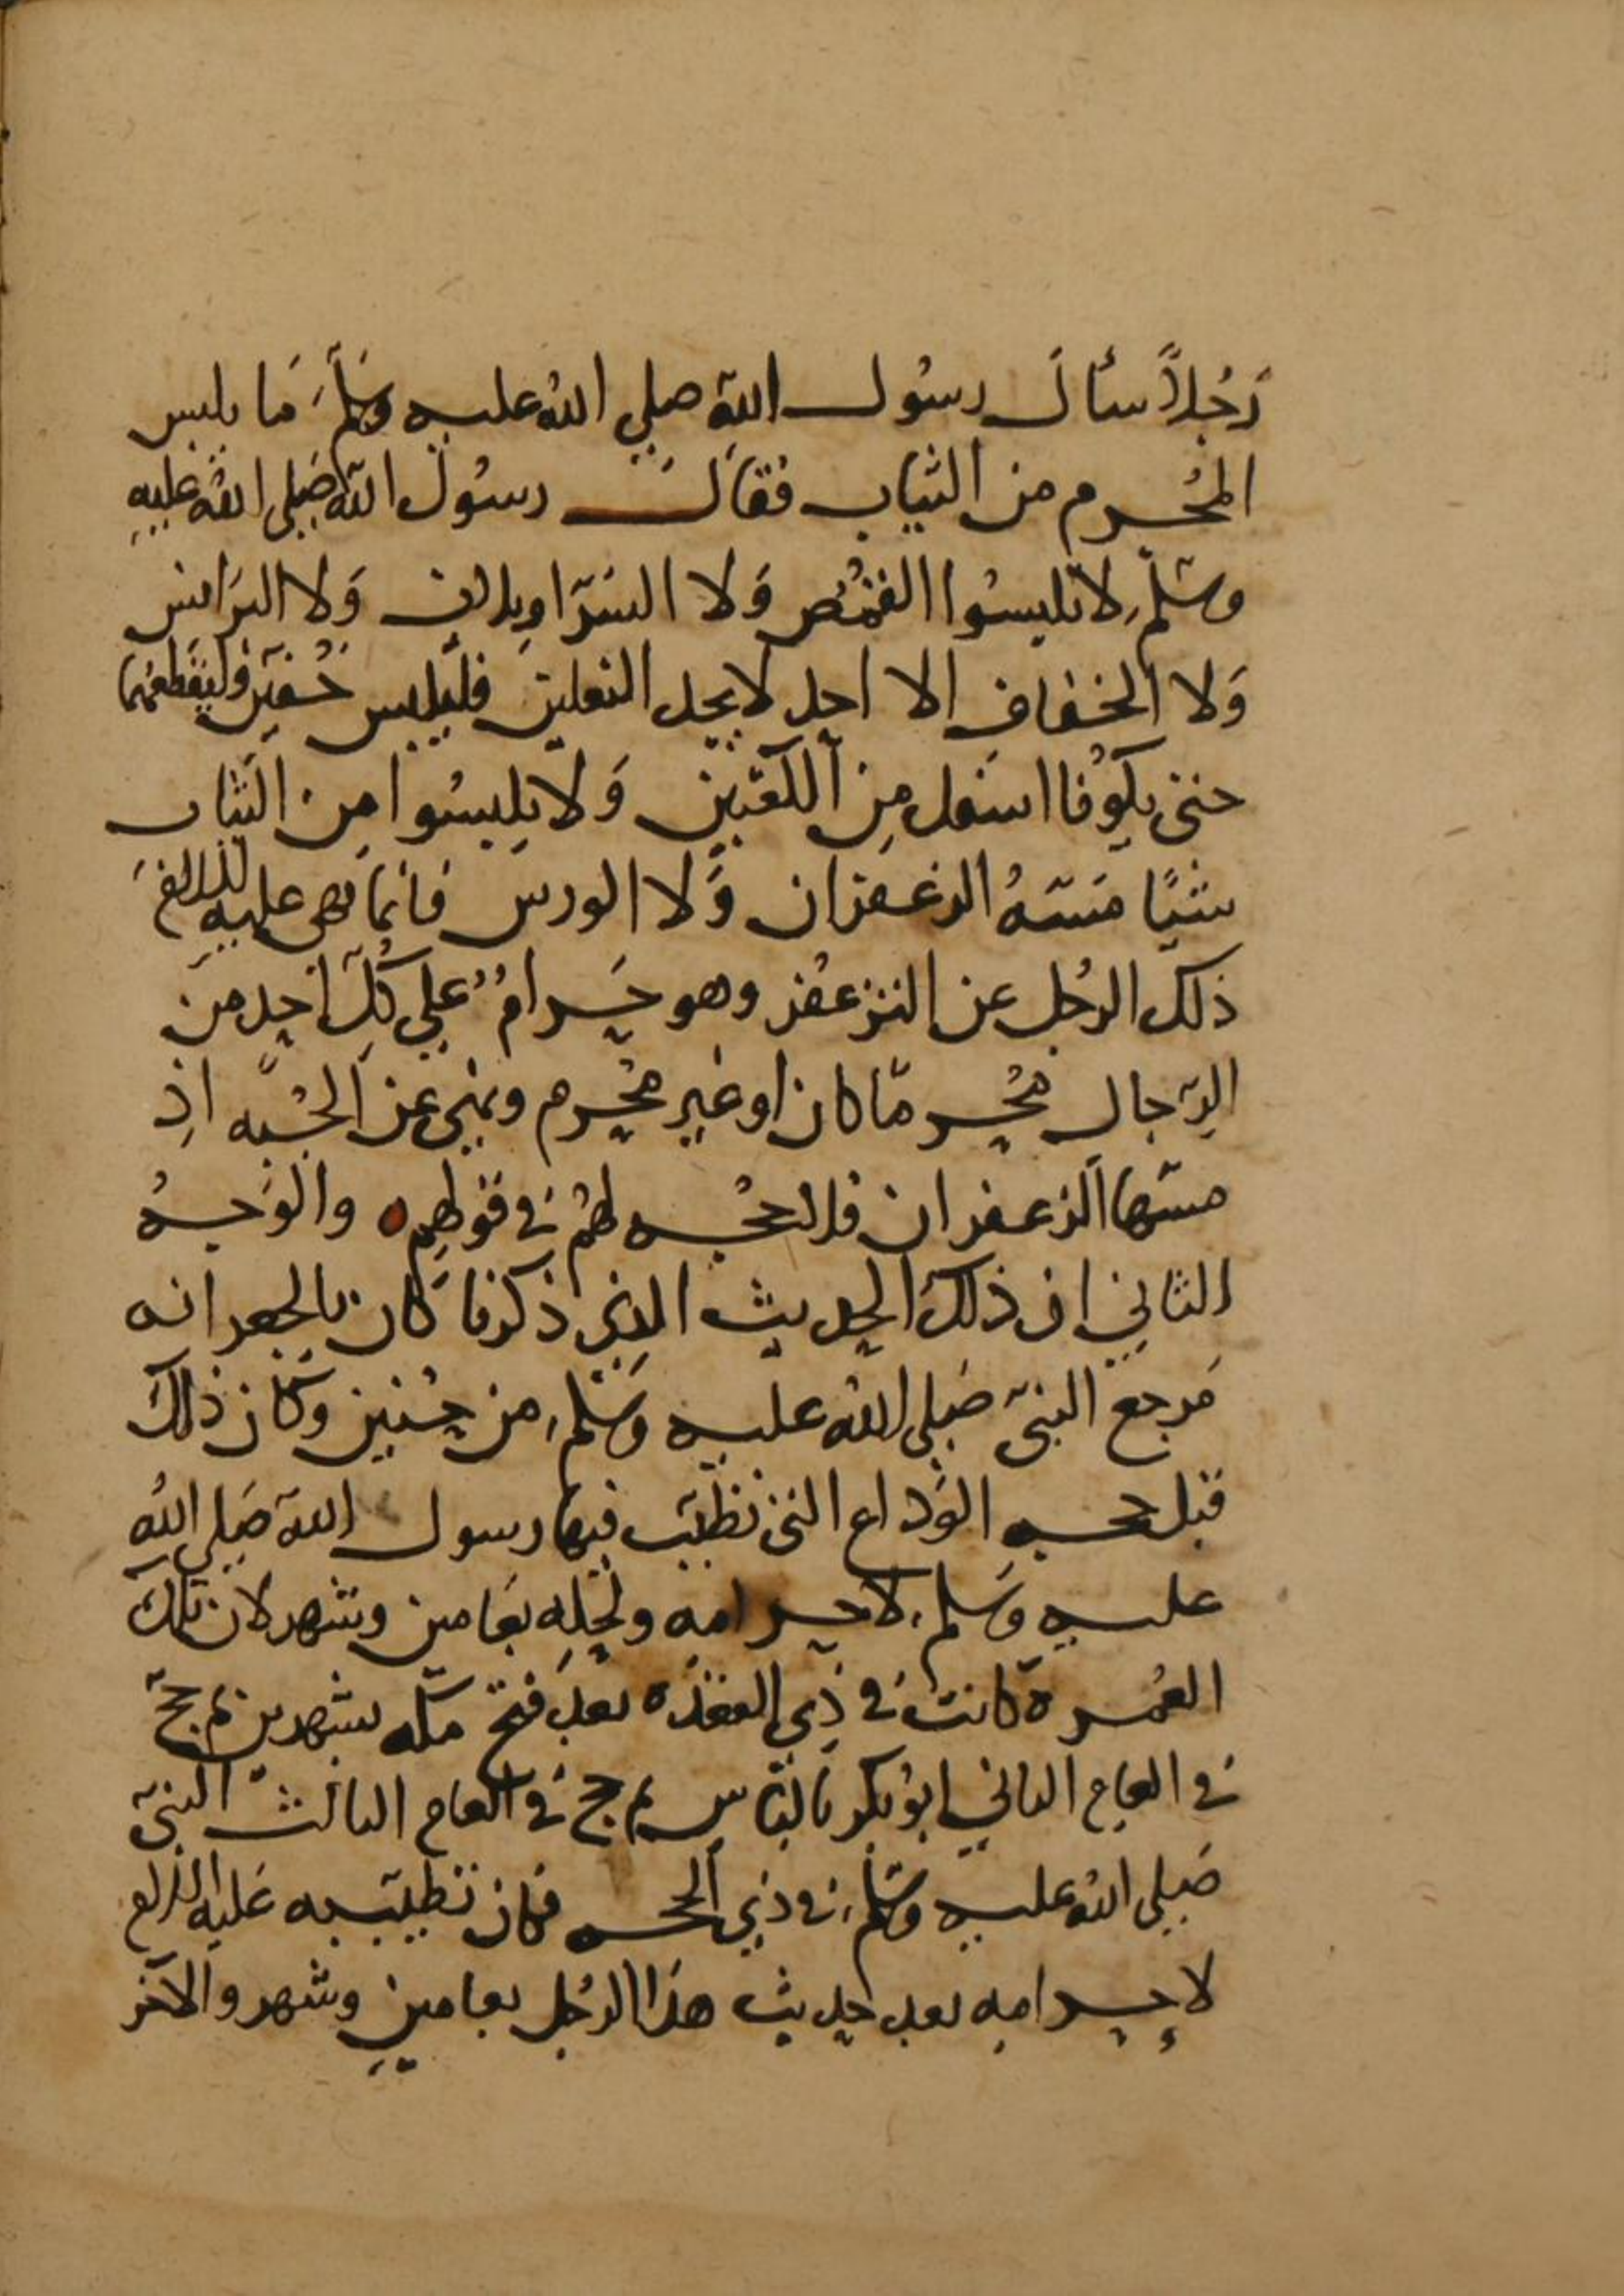 رَجُلاً سأل رسُول اللّهِ صلي اللهُ عليه وسَلَّمَ مَا يلبس
المُحرم من الثياب فقال رسُول اللّه صَلى الله عليهِ
وسَلّم لا تلبسُوا القُمُص وَلا السَرّاويلات وَلا البَرانس
وَلا الخفاف الا احد لا يجد النعلين فليلبس خُفين وليَقطعهُما
حتى يكوُنا اسفل مِن الكَعْبين وَلا يلبسُوا مِن الثياب
شيًا مَسّهُ الزعفران وَلا الورس فانما نهى عليه السلم
ذلك الرجُل عن التزعفُر وهو حَرامُ علي كُلّ احد من
الرّجال مُحرمّا كان او غير مُحرم ونهى عن الجُبه اذ
مسّها الزعفران فلا حُجه لهُم في قولهم ه والوَجهُ
الثاني ان ذلك الحديث الذي ذكرنا كان بالجعرانه
مَرجع النبيّ صَلى اللهُ عليه وسَلّم من حُنين وكان ذلك
قبل حجه الوَداع التي تطيّب فيها رسول اللّه صَلي اللهُ
عليه وسَلم لاحرامه ولحِلِه بعَامين وشهر لان تلك
العُمرة كانت في ذي القعَدَه بعد فتح مكّه بشهرين ثم حجّ
في العام الثاني ابوُ بكر بالناس ثم حج في العام الثالث النبيّ
صَلى اللهُ عليه وسَلّم في ذي الحجه فكان تطيّبه عَليه السلم
لاحرامه بعد حديث هذا الرجُل بعامين وشهر والآخر